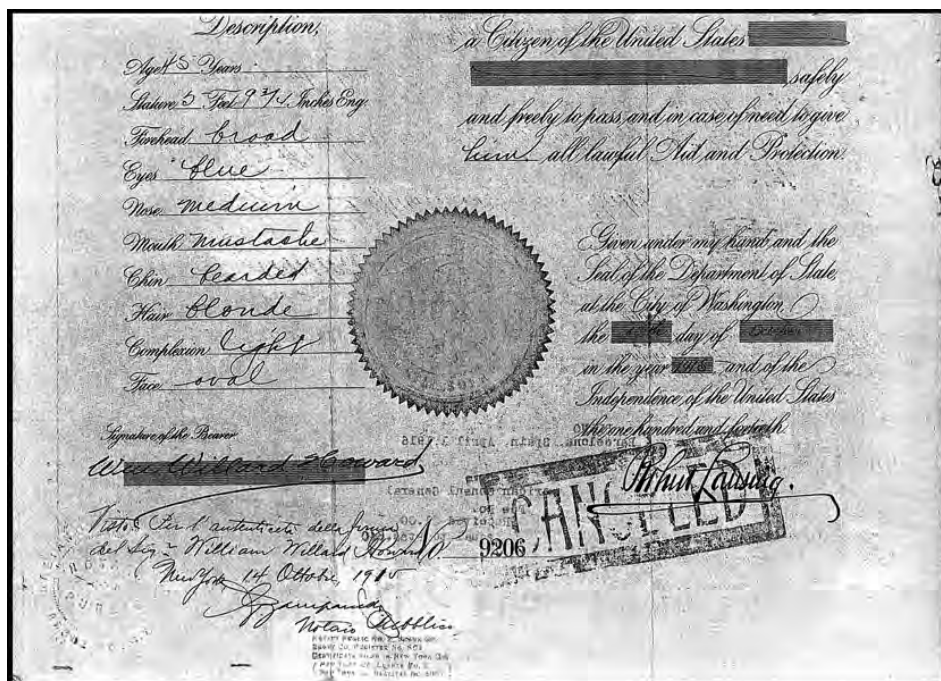 Description,
Age 45 Years
Stature 5 Feet 9 3/4 Inches Eng.
Forehead broad
Eyes blue
Nose medium
Mouth mustache
Chin bearded
Hair blonde
Complexion light
Face oval
Signature of the Bearer
Wm Willard Howard
Visto Per l'autenticità della firma
del Sig William Willard Howard
New York 14 Ottobre, 1915
Notaio Pubblico
a Citizen of the United States
safely
and freely to pass, and in case of need to give
him all lawful Aid and Protection.
Given under my hand and the
Seal of the Department of State,
at the City of Washington,
the day of October
in the year 1915 and of the
Independence of the United States
the one hundred and fortieth.
Barcelona, Spain, April 3, 1916
American Consul General
Robert Lansing.
No. 9206
CANCELLED